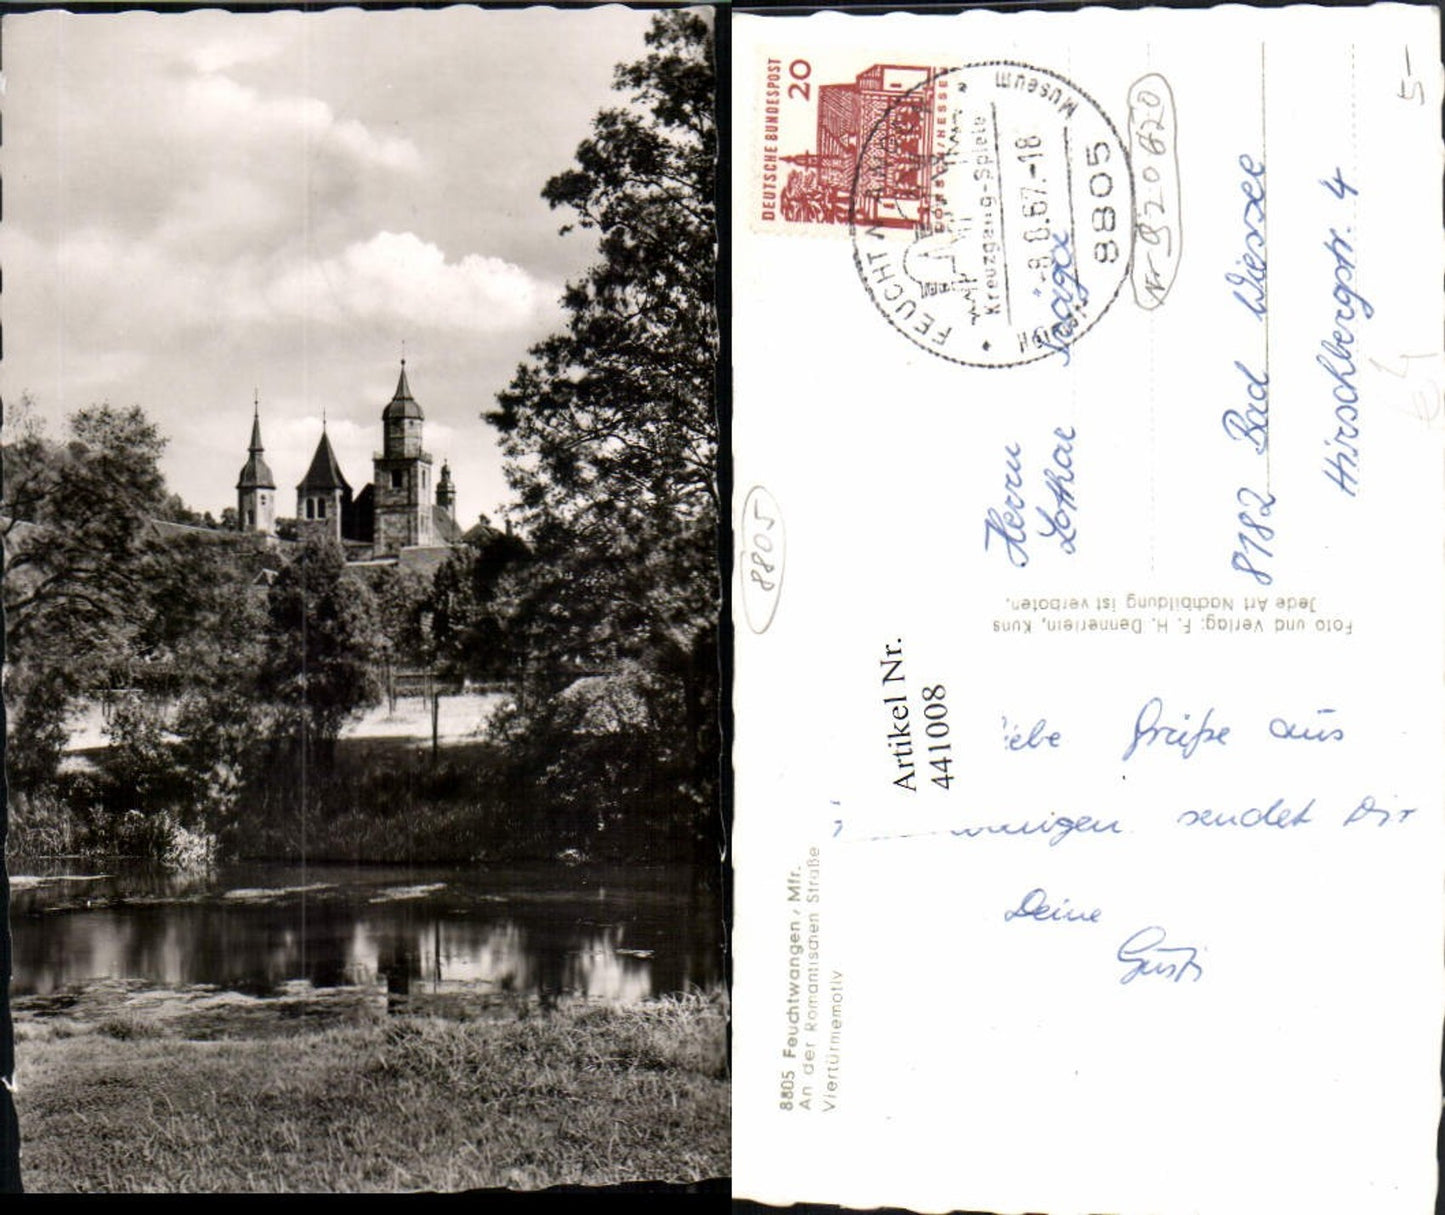 DEUTSCHE BUNDESPOST
20
FEUCHTWANGEN
Museum
Kreuzgang-Spiele
-8.8.67.-18
8805
Nr 920620
5-
8805
Herrn
Lothar
8182 Bad Wiessee
Hirschbergstr. 4
Foto und Verlag: F. H. Dennerlein, Kuns
Jede Art Nachbildung ist verboten.
Artikel Nr.
441008
iebe Grüße aus
wangen sendet Dir
Deine
Gusti
8805 Feuchtwangen / Mfr.
An der Romantischen Straße
Viertürmemotiv